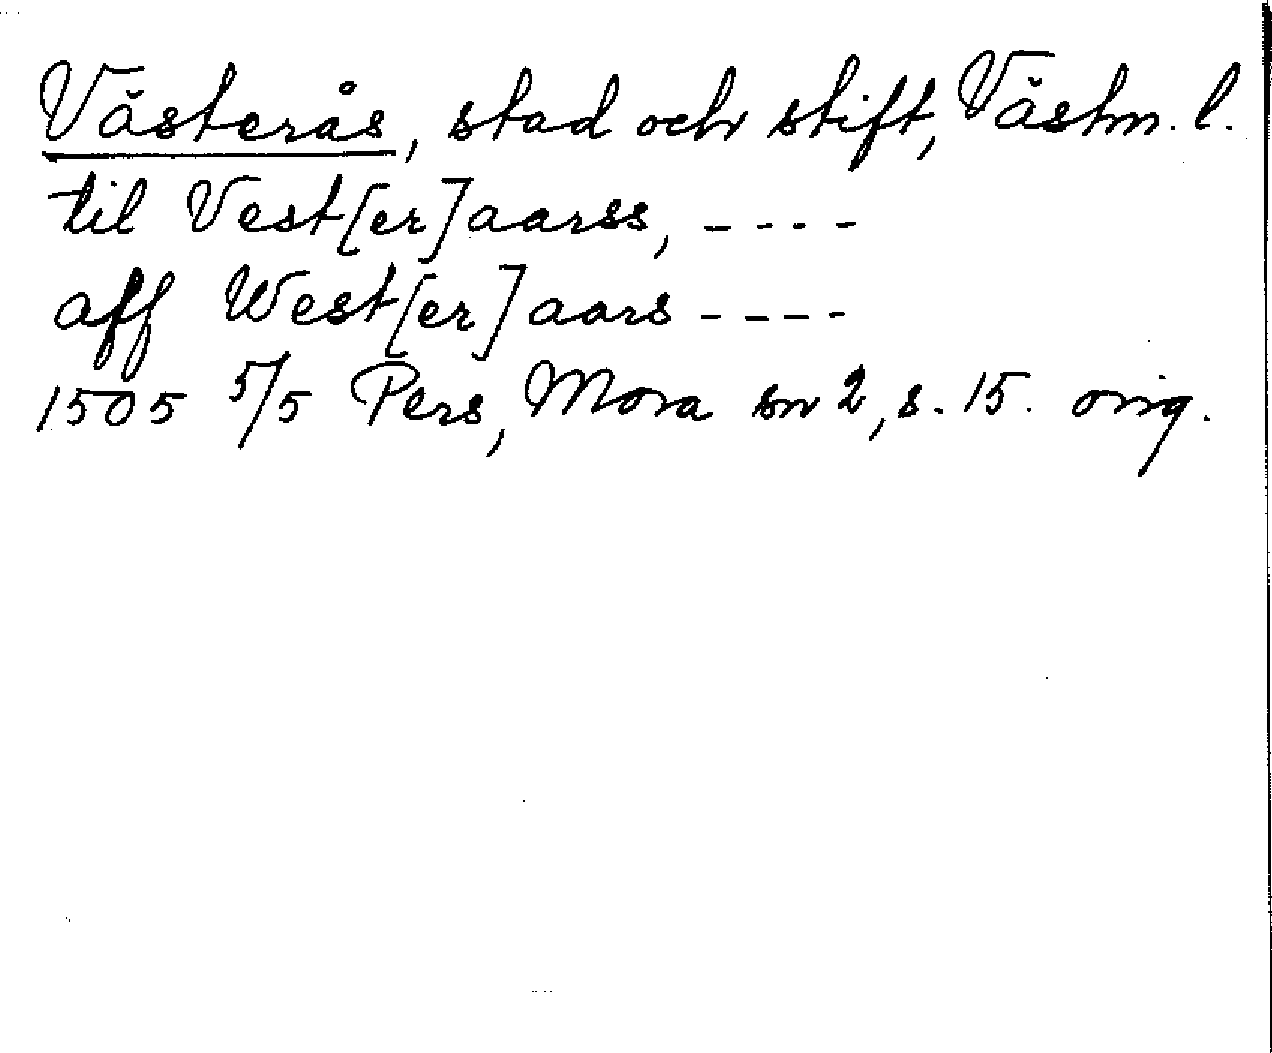 Västerås, stad och stift, Västm. l.
til Vest[er]aarss, - - - -
aff West[er]aars - - - -
1505 5/5 Pers, Mora sn 2, s. 15. orig.